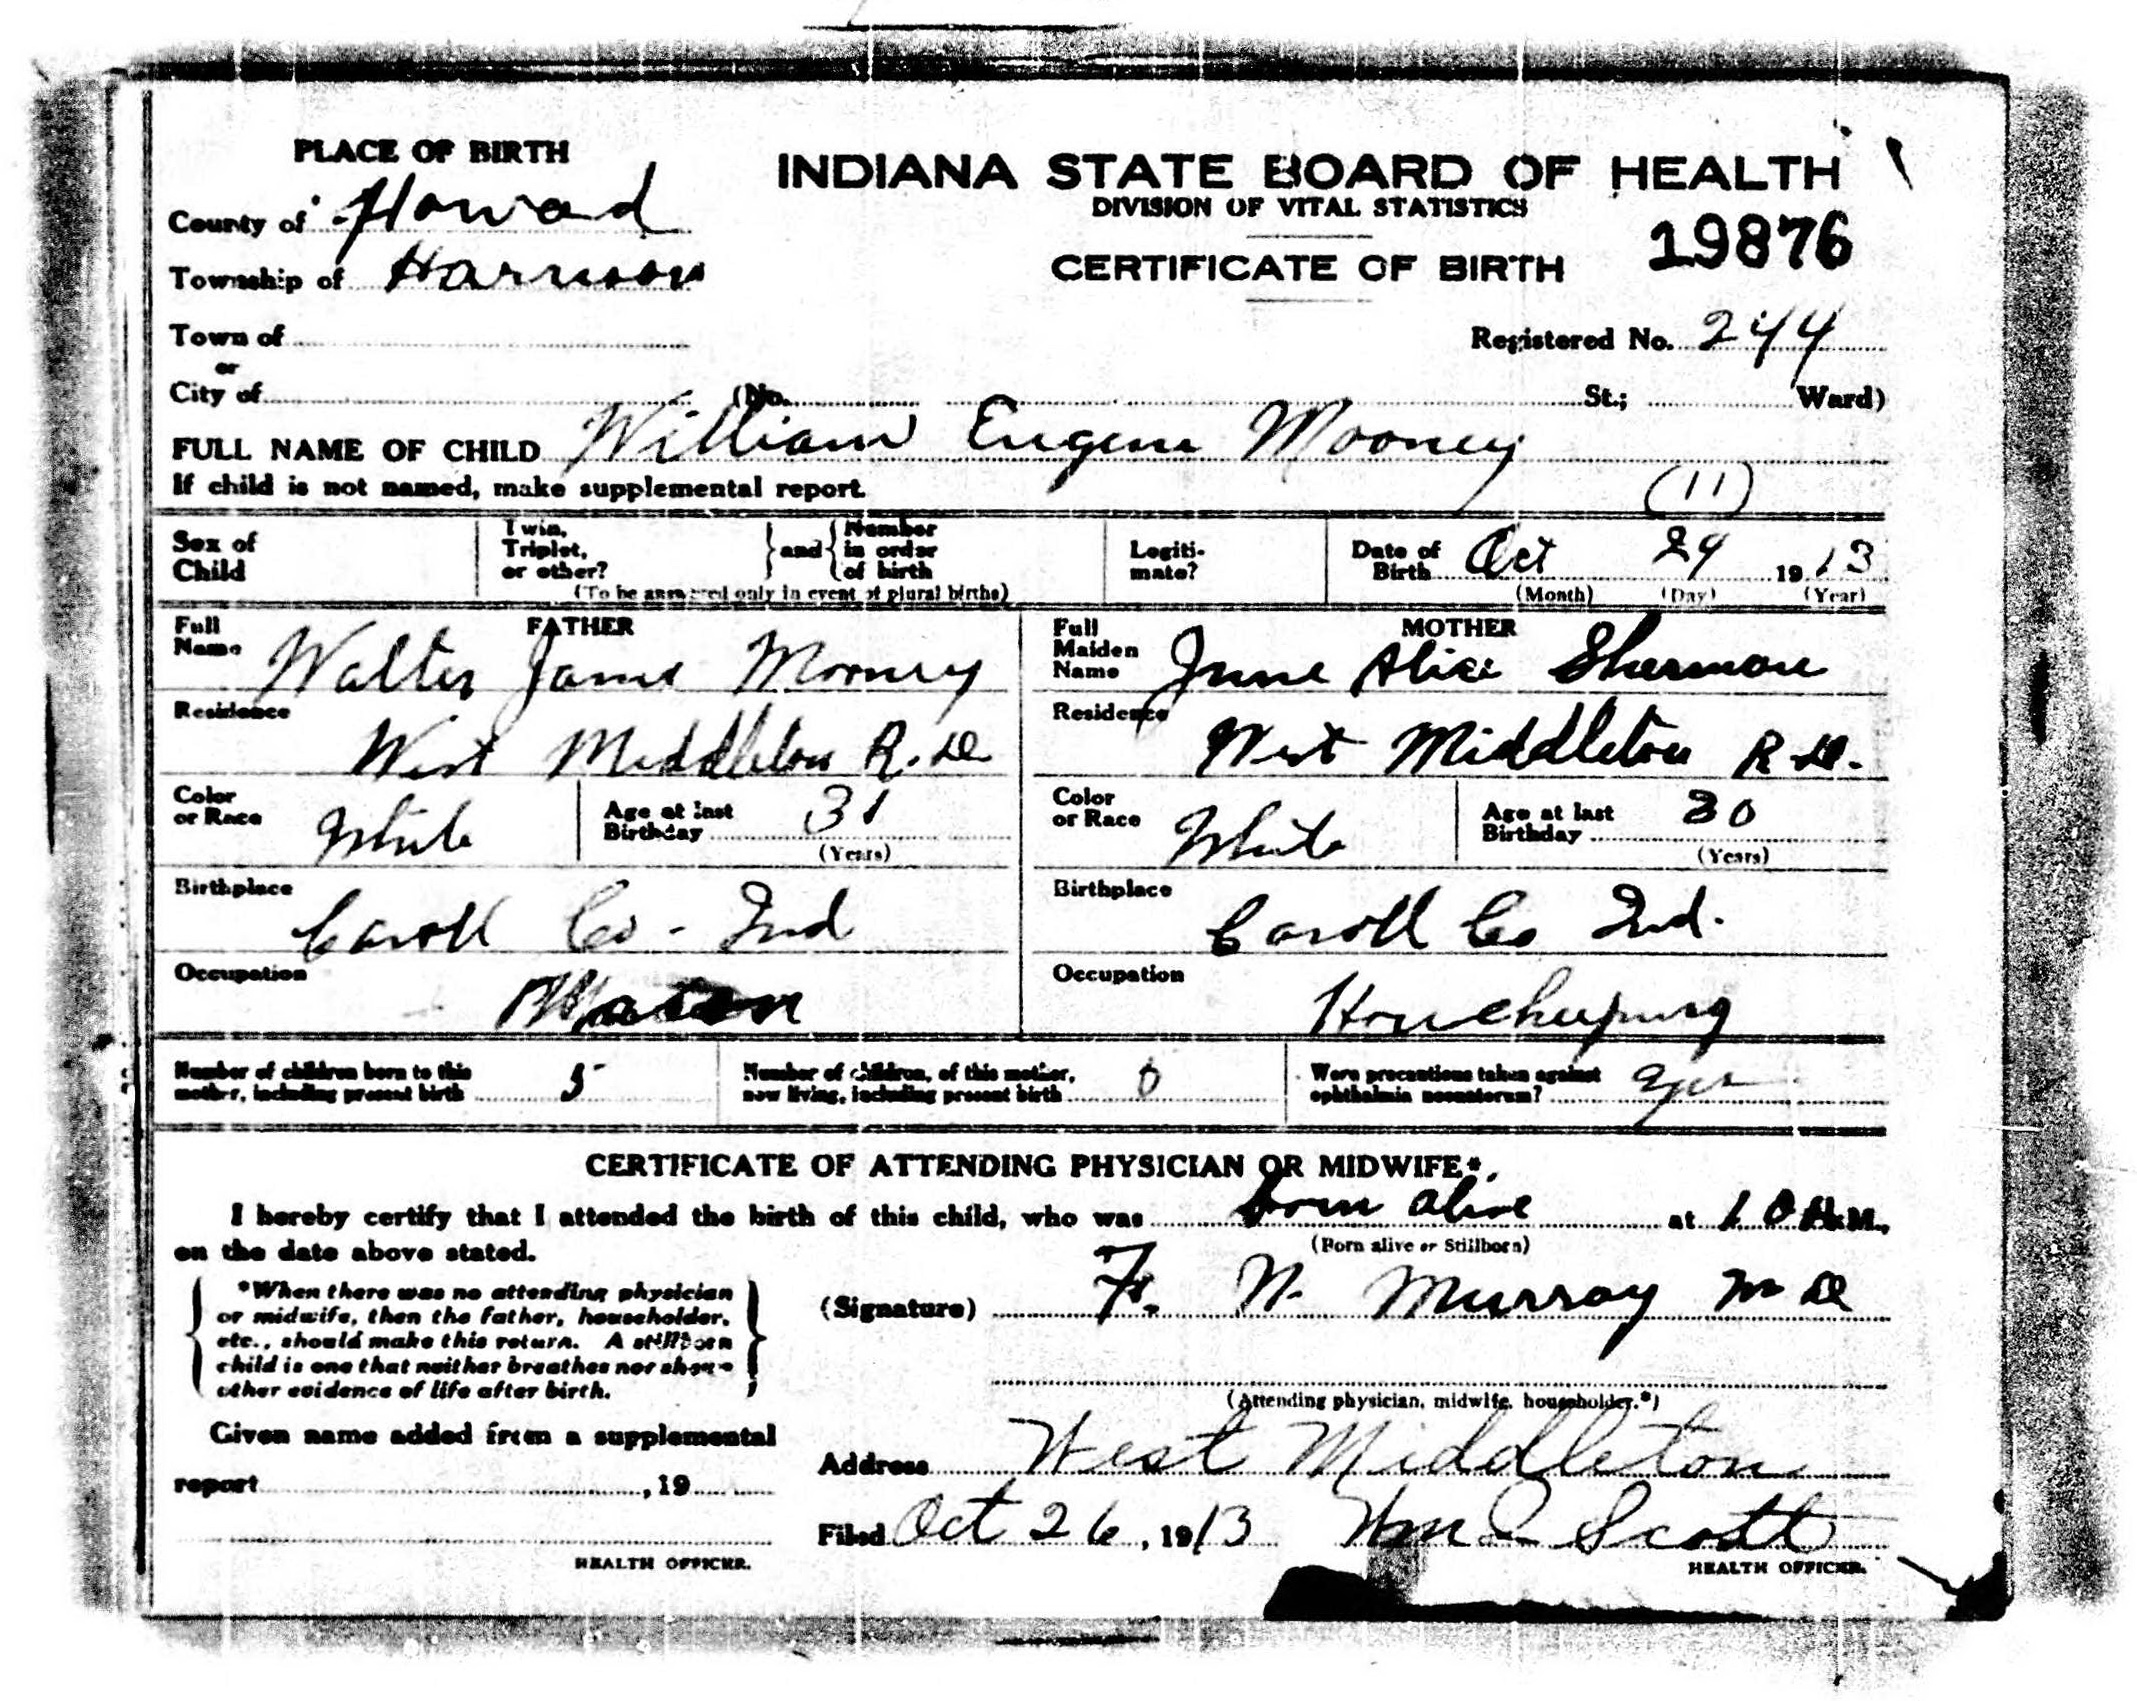 PLACE OF BIRTH
INDIANA STATE BOARD OF HEALTH
DIVISION OF VITAL STATISTICS
County of Howard
19876
Township of Harrison
CERTIFICATE OF BIRTH
Town of
Registered No. 244
or
City of (No. St.; Ward)
FULL NAME OF CHILD William Eugene Mooney
If child is not named, make supplemental report.
(11)
Sex of Child
Twin, Triplet, or other?
and
Number in order of birth
(To be answered only in event of plural births)
Legiti-mate?
Date of Birth Oct 1913
(Month) (Day) (Year)
FATHER
Full Name Walter James Mooney
MOTHER
Full Maiden Name June Alice
Residence West Middleton R.D
Residence West Middleton R D.
Color or Race White
Age at last Birthday 31
(Years)
Color or Race White
Age at last Birthday 30
(Years)
Birthplace Caroll Co - Ind
Birthplace Caroll Co Ind.
Occupation Mason
Occupation Housekeeping
Number of children born to this mother, including present birth 5
Number of children, of this mother, now living, including present birth
Were precautions taken against ophthalmia neonatorum? yes
CERTIFICATE OF ATTENDING PHYSICIAN OR MIDWIFE*.
I hereby certify that I attended the birth of this child, who was born alive at M.,
(Born alive or Stillborn)
on the date above stated.
*When there was no attending physician
or midwife, then the father, householder,
etc., should make this return. A stillborn
child is one that neither breathes nor shows
other evidence of life after birth.
(Signature) F. N. Murray M D
(Attending physician, midwife, householder.*)
Given name added from a supplemental
report , 19
HEALTH OFFICER.
Address West Middleton
Filed Oct 26, 1913 Wm Scott
HEALTH OFFICER.